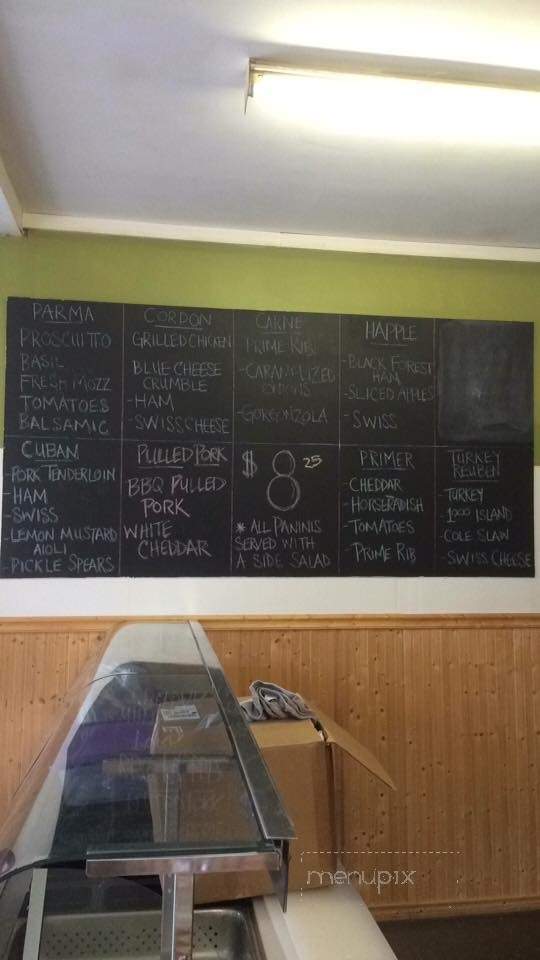 PARMA
PROSCUITTO
BASIL
FRESH MOZZ
TOMATOES
BALSAMIC
CORDON
GRILLED CHICKEN
BLUE CHEESE
CRUMBLE
-HAM
-SWISS CHEESE
CARNE
PRIME RIB
-CARAMELIZED
ONIONS
-GORGONZOLA
HAPPLE
-BLACK FOREST
HAM
-SLICED APPLES
-SWISS
CUBAN
-PORK TENDERLOIN
-HAM
-SWISS
-LEMON MUSTARD
AIOLI
-PICKLE SPEARS
PULLED PORK
BBQ PULLED
PORK
WHITE
CHEDDAR
$8 25
* ALL PANINIS
SERVED WITH
A SIDE SALAD
PRIMER
-CHEDDAR
-HORSERADISH
-TOMATOES
-PRIME RIB
TURKEY
REUBEN
-TURKEY
-1000 ISLAND
-COLE SLAW
-SWISS CHEESE
menupix